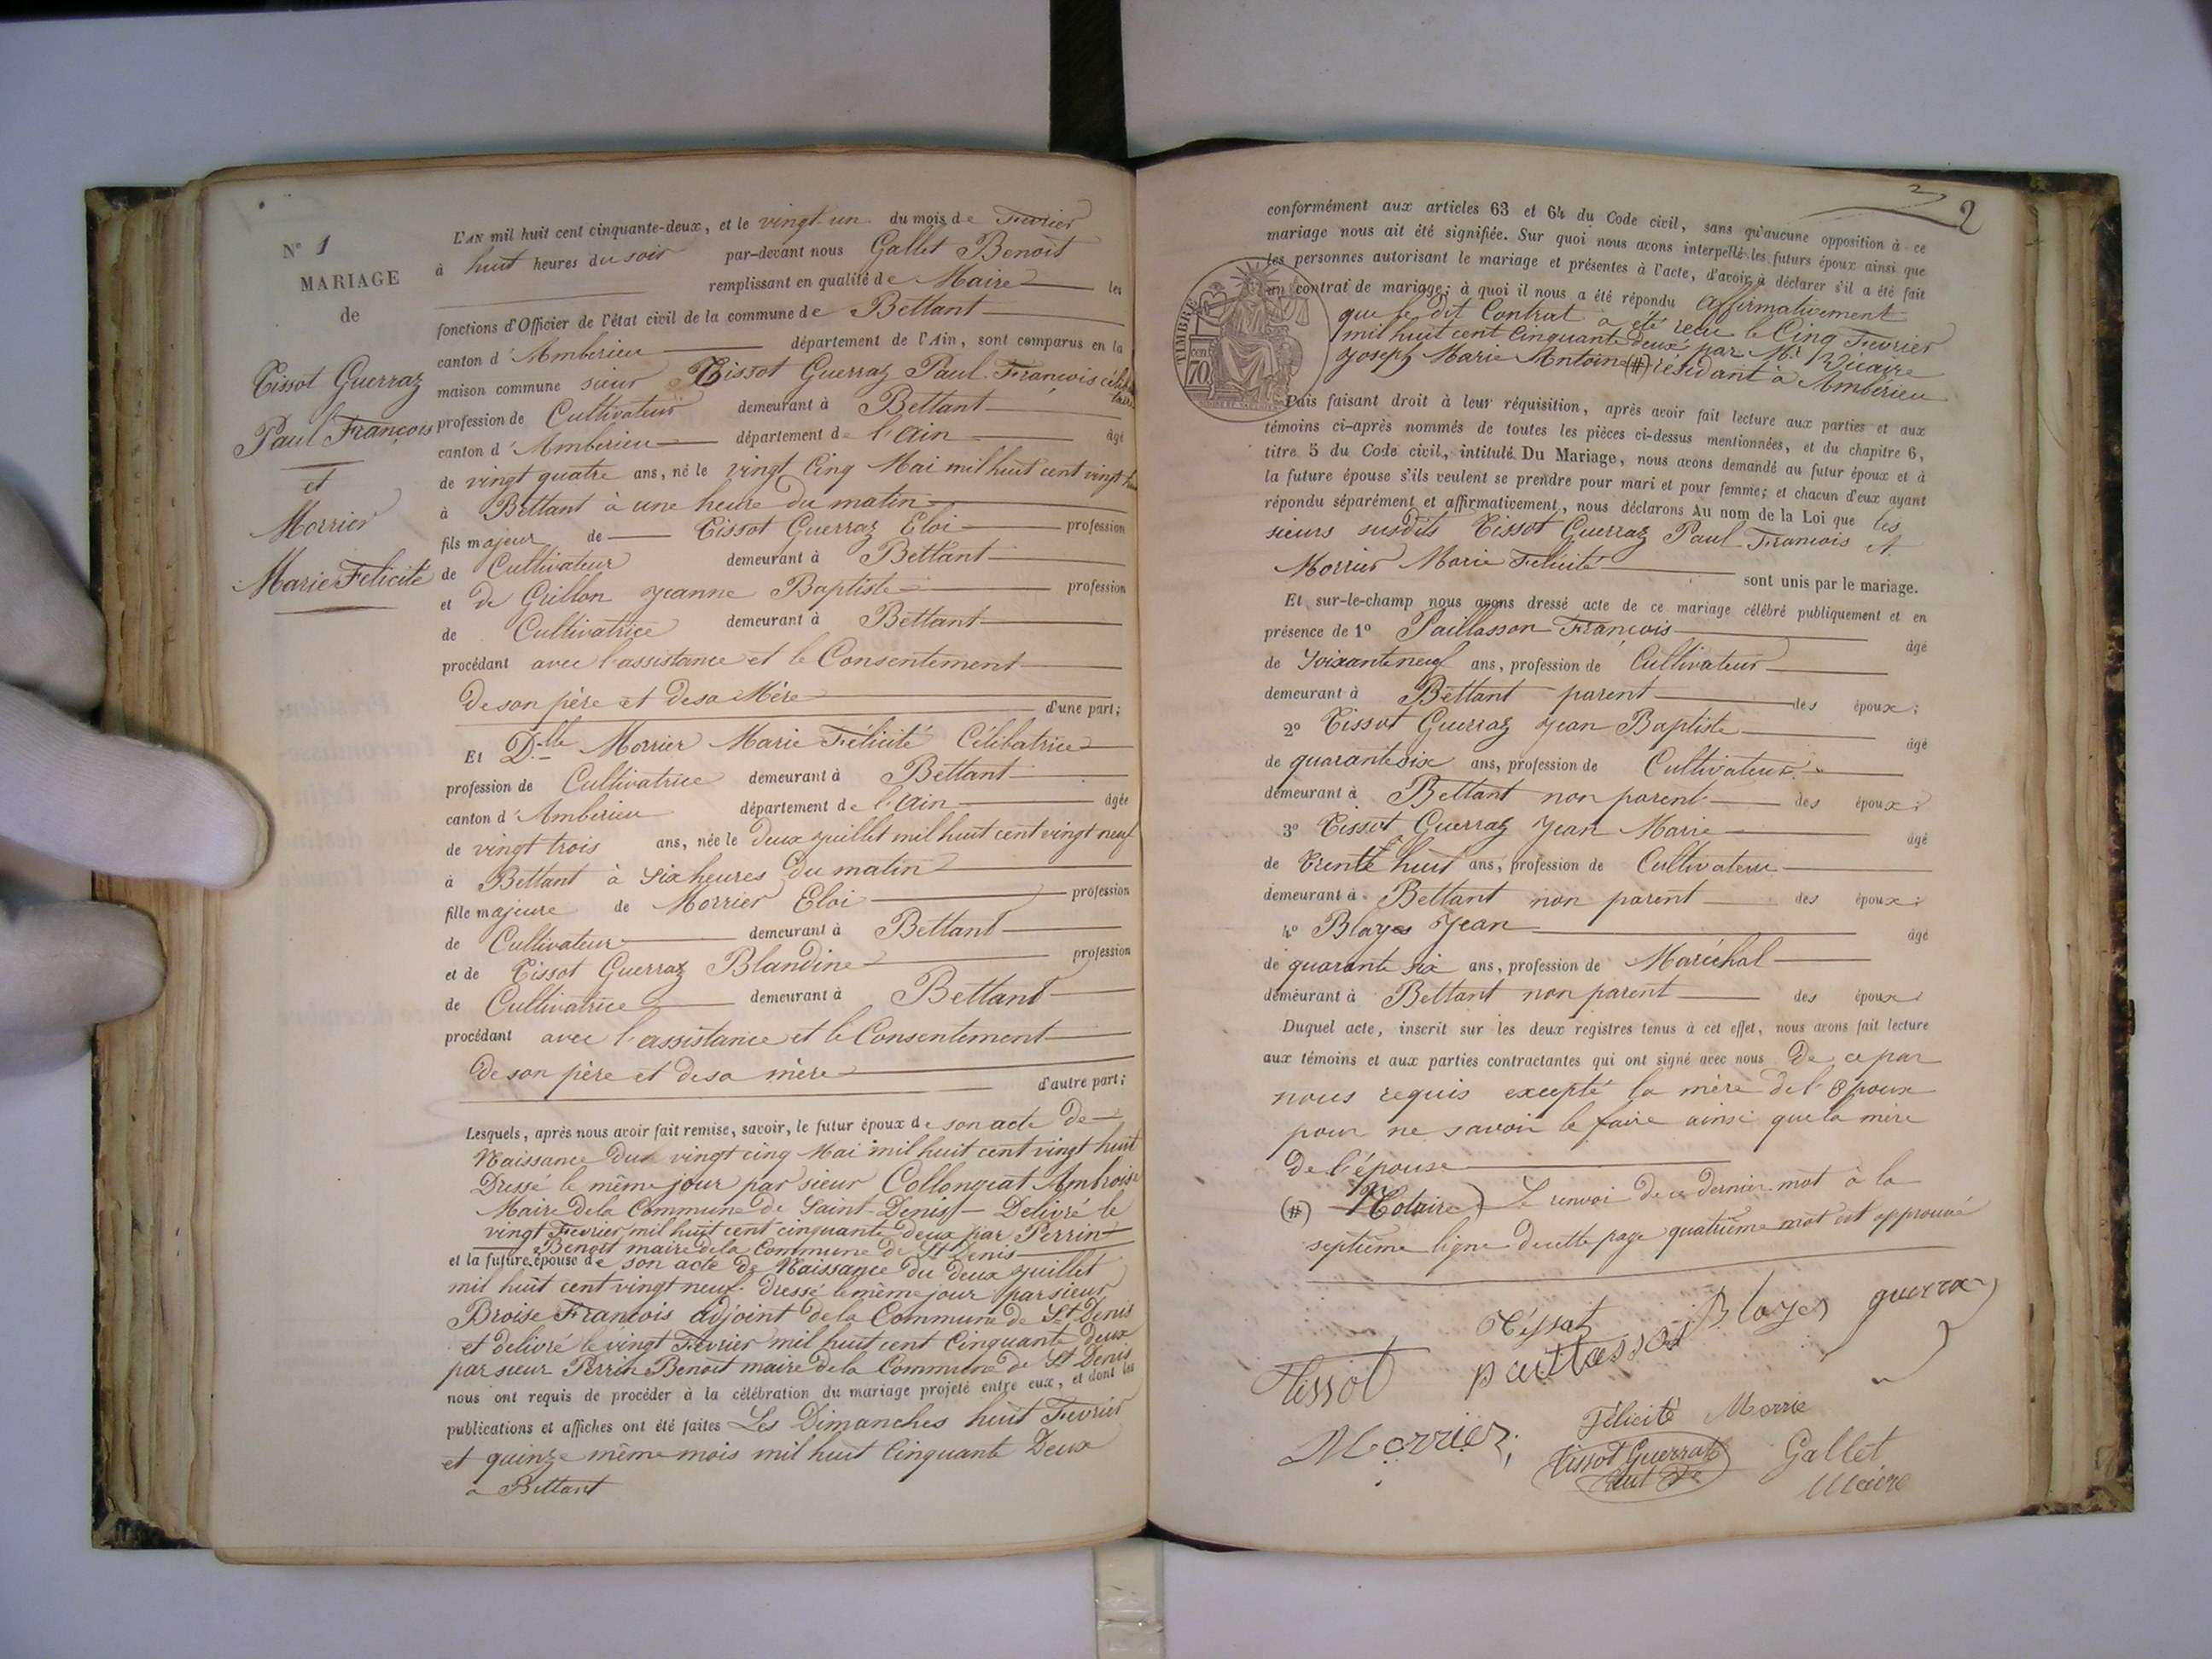 N° 1
MARIAGE
de
Tissot Guerraz
Paul François
et
Morrier
Marie Félicité
L'AN mil huit cent cinquante-deux, et le vingt-un du mois de Février
à huit heures du soir par-devant nous Gallet Benoit
remplissant en qualité de Maire les
fonctions d'Officier de l'état civil de la commune de Bettant
canton d'Ambérieu département de l'Ain, sont comparus en la
maison commune sieur Tissot Guerraz Paul François céliba
taire
profession de Cultivateur demeurant à Bettant
canton d'Ambérieu département de l'Ain âgé
de vingt quatre ans, né le vingt Cinq Mai mil huit cent vingt
à Bettant à une heure du matin
fils majeur de Tissot Guerraz Eloi profession
de Cultivateur demeurant à Bettant
et de Grillon Jeanne Baptiste profession
de Cultivatrice demeurant à Bettant
procédant avec l'assistance et le Consentement
de son père et de sa Mère d'une part;
Et D.lle Morrier Marie Félicité Célibatrice
profession de Cultivatrice demeurant à Bettant
canton d'Ambérieu département de l'Ain âgée
de vingt trois ans, née le deux juillet mil huit cent vingt neuf
à Bettant à six heures du matin
fille majeure de Morrier Eloi profession
de Cultivateur demeurant à Bettant
et de Tissot Guerraz Blandine profession
de Cultivatrice demeurant à Bettant
procédant avec l'assistance et le Consentement
de son père et de sa mère d'autre part;
Lesquels, après nous avoir fait remise, savoir, le futur époux de son acte de
Naissance du vingt cinq Mai mil huit cent vingt huit
Dressé le même jour par sieur Collongeat Ambroise
Maire de la Commune de Saint-Denis Délivré le
vingt Février mil huit cent cinquante deux par Perrin
Benoit maire de la Commune de St Denis
et la future épouse de son acte de Naissance du deux juillet
mil huit cent vingt neuf dressé le même jour par sieur
Broise François adjoint de la Commune de St Denis
et délivré le vingt Février mil huit cent Cinquante deux
par sieur Perrin Benoit maire de la Commune de St Denis
nous ont requis de procéder à la célébration du mariage projeté entre eux, et dont les
publications et affiches ont été faites Les Dimanches huit Février
et quinze même mois mil huit Cinquante Deux
à Bettant
2
2
conformément aux articles 63 et 64 du Code civil, sans qu'aucune opposition à ce
mariage nous ait été signifiée. Sur quoi nous avons interpellé les futurs époux ainsi que
les personnes autorisant le mariage et présentes à l'acte, d'avoir à déclarer s'il a été fait
un contrat de mariage; à quoi il nous a été répondu affirmativement
que le dit Contrat a été recu le Cinq Février
mil huit cent Cinquante deux par Mr Vicaire
Joseph Marie Antoine (#) résidant à Ambérieu
TIMBRE
cen
70
Puis faisant droit à leur réquisition, après avoir fait lecture aux parties et aux
témoins ci-après nommés de toutes les pièces ci-dessus mentionnées, et du chapitre 6,
titre 5 du Code civil, intitulé Du Mariage, nous avons demandé au futur époux et à
la future épouse s'ils veulent se prendre pour mari et pour femme; et chacun d'eux ayant
répondu séparément et affirmativement, nous déclarons Au nom de la Loi que les
sieurs susdits Tissot Guerraz Paul François et
Morrier Marie Félicité
sont unis par le mariage.
Et sur-le-champ nous avons dressé acte de ce mariage célébré publiquement et en
présence de 1° Paillasson François âgé
de Soixante neuf ans, profession de Cultivateur
demeurant à Bettant parent des époux;
2° Tissot Guerraz Jean Baptiste âgé
de quarante six ans, profession de Cultivateur
demeurant à Bettant non parent des époux;
3° Tissot Guerraz Jean Marie âgé
de trente huit ans, profession de Cultivateur
demeurant à Bettant non parent des époux;
4° Blayes Jean âgé
de quarante six ans, profession de Maréchal
demeurant à Bettant non parent des époux
Duquel acte, inscrit sur les deux registres tenus à cet effet, nous avons fait lecture
aux témoins et aux parties contractantes qui ont signé avec nous De ce par
nous requis excepté la mère de l'Epoux
pour ne savoir le faire ainsi que la mère
de l'épouse
(#) Notaire) Le renvoi de ce dernier mot à la
septième ligne de cette page quatrième mot est approuvé
Tissot
Blayes
guerraz
Tissot
paillasson
Félicité Morrie
Morrier
Tissot Guerraz
Gallet
Maire